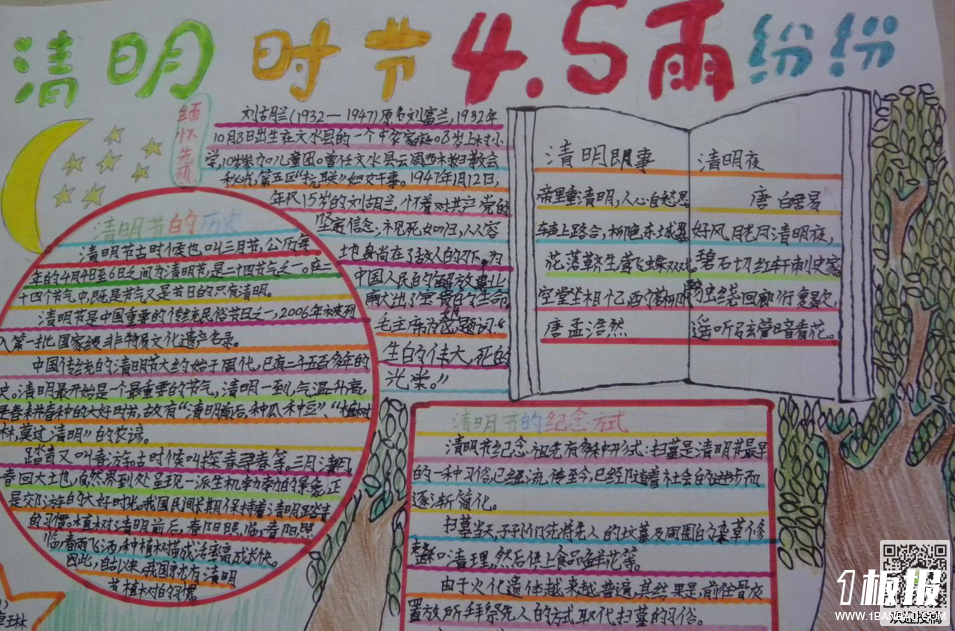 清明时节4.5雨纷纷
缅怀先烈
刘胡兰(1932—1947)原名刘富兰,1932年
10月8日出生在文水县的一个中农家庭。8岁上村小
学,10岁参加儿童团。曾任文水县云周西村妇救会
秘书,第五区"抗联"妇女干事。1947年1月12日,
年仅15岁的刘胡兰,怀着对共产党的
坚定信念,视死如归,从容
地身尚在3敌人的铡下,为
中国人民的解放事业
献出了宝贵的生命
毛主席为她题词:“
生的伟大,死的
光荣。”
清明即事
帝里重清明,人心自愁思
车声上路合,柳色东城翠
花落草齐生莺飞蝶双戏
空堂坐相忆酉
唐 孟浩然
清明夜
唐 白居易
好风胧月清明夜,
碧石切红轩刺史家
独出绕回廊行复歇,
遥听弦管暗看花。
清明节的历史
清明节古时候也叫三月节,公历每
年的4月4日至6日之间为清明节,是二十四节气之一。在二
十四个节气中,既是节气又是节日的只有清明。
清明节是中国重要的传统民俗节日之一,2006年被列
入第一批国家级非物质文化遗产名录。
中国传统的清明节大约始于周代,已有二千五百多年的
史。清明最开始是一个最重要的节气,清明一到,气温升高,
是春耕春种的大好时节,故有“清明前后,种瓜种豆”“植树
林,莫过清明”的农谚。
踏青又叫春游,古时候叫探春寻春等。三月清明,
春回大土也,自然界到处呈现一派生机勃勃的景象,正
是交游的大好时光。我国民间长期保持着清明踏青
的习惯。植树:清明前后,春阳照临,春阳照
临,春雨飞洒,种植树苗成活率高,成长快。
因此,自古以来,我国就有清明
节植树的习惯
清明节的纪念方式
清明节纪念祖先有多种形式:扫墓是清明节最早
的一种习俗,已经流传至今,已经随着社会的进步而
逐渐简化。
扫墓当天,子孙们先将先人的坟墓及周围的杂草修
整和清理,然后供上食品鲜花等。
由于火化遗体越来越普遍,其结果是,前往骨灰
置放听拜祭先人的方式取代扫墓的习俗。
1板报
WWW.1BANBAO.COM
欢迎投稿